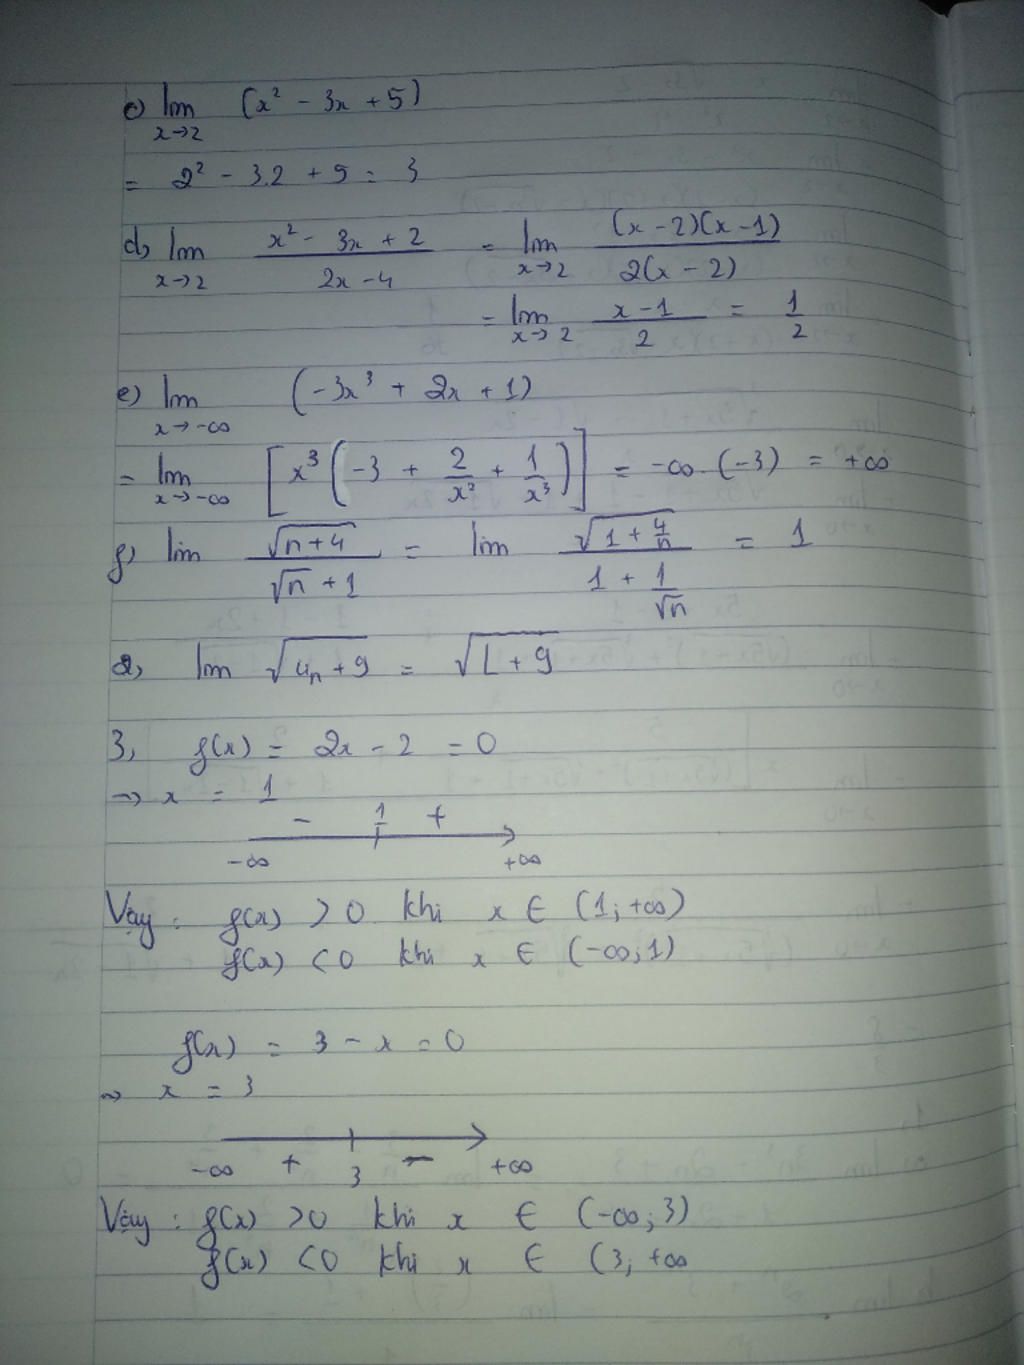 c) lim (x² - 3x + 5)
x→2
= 2² - 3.2 + 5 = 3
d, lim x→2 (x² - 3x + 2)/(2x - 4) = lim x→2 (x - 2)(x - 1)/2(x - 2)
= lim x→2 (x - 1)/2 = 1/2
e) lim (-3x³ + 2x + 1)
x→-∞
= lim x→-∞ [x³(-3 + 2/x² + 1/x³)] = -∞.(-3) = +∞
f, lim √(n+4)/(√n + 1) = lim √(1 + 4/n)/(1 + 1/√n) = 1
2, lim √(uₙ + 9) = √(L + 9)
3, f(x) = 2x - 2 = 0
→ x = 1
- 1 +
-∞ +∞
Vậy : f(x) > 0 khi x ∈ (1; +∞)
f(x) < 0 khi x ∈ (-∞; 1)
f(x) = 3 - x = 0
→ x = 3
-∞ + 3 - +∞
Vậy : f(x) > 0 khi x ∈ (-∞; 3)
f(x) < 0 khi x ∈ (3; +∞